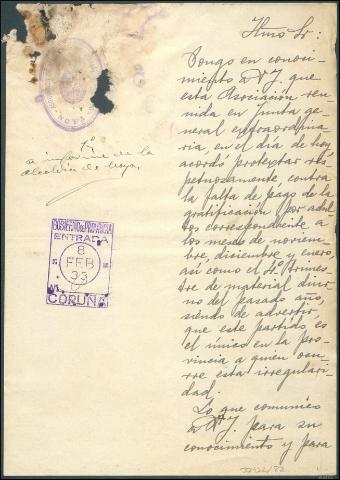 Ilmo Sr:
Pongo en conoci-
miento a V.I. que
esta Asociación reu-
nida en Junta ge-
neral extraordina-
ria, en el día de hoy,
acordó protextar res-
petuosamente, contra
la falta de pago de la
gratificación por adul-
tos correspondiente a
los meses de noviem-
bre, diciembre y enero,
así como el 4º trimes-
tre de material diur-
no del pasado año,
siendo de advertir,
que este partido, es
el único en la pro-
vincia a quien ocu-
rre esta irregulari-
dad.
Lo que comunico
a V.I. para su
conocimiento y para
NOYA
a informe de la
alcaldía de Noya,
ENTRADA
8
FEB
33
CORUÑA